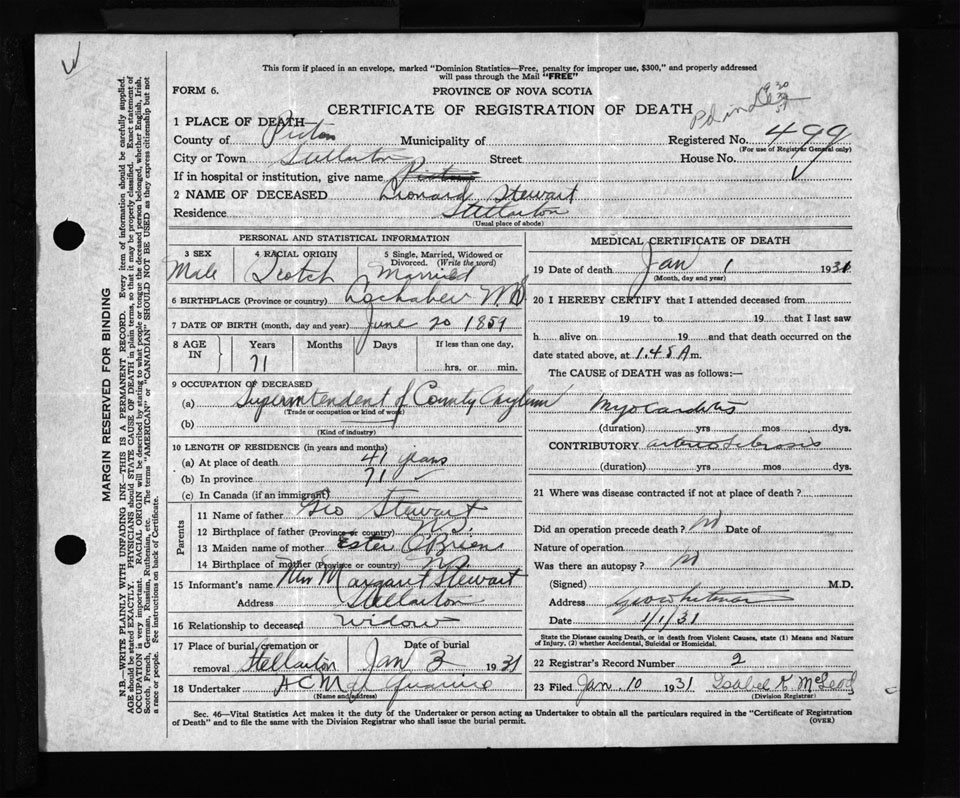 This form if placed in an envelope, marked "Dominion Statistics—Free, penalty for improper use, $300," and properly addressed
will pass through the Mail "FREE"
FORM 6.
PROVINCE OF NOVA SCOTIA
CERTIFICATE OF REGISTRATION OF DEATH
1 PLACE OF DEATH
County of Pictou Municipality of Registered No. 499
(For use of Registrar General only)
City or Town Stellarton Street House No.
If in hospital or institution, give name
2 NAME OF DECEASED Leonard Stewart
Residence Stellarton
(Usual place of abode)
PERSONAL AND STATISTICAL INFORMATION
3 SEX 4 RACIAL ORIGIN 5 Single, Married, Widowed or
Divorced. (Write the word)
Male Scotch Married
6 BIRTHPLACE (Province or country) Lochaber N S
7 DATE OF BIRTH (month, day and year) June 20 1859
8 AGE IN Years Months Days If less than one day,
71 hrs. or min.
9 OCCUPATION OF DECEASED
(a) Superintendent of County Asylum
(Trade or occupation or kind of work)
(b)
(Kind of industry)
10 LENGTH OF RESIDENCE (in years and months)
(a) At place of death 41 years
(b) In province 71
(c) In Canada (if an immigrant)
Parents
11 Name of father Geo Stewart
12 Birthplace of father (Province or country) N.S.
13 Maiden name of mother Ester O'Brien
14 Birthplace of mother (Province or country) N S
15 Informant's name Mrs Margaret Stewart
Address Stellarton
16 Relationship to deceased widow
17 Place of burial, cremation or Date of burial
removal Stellarton Jan 3 1931
18 Undertaker
(Name and address)
MEDICAL CERTIFICATE OF DEATH
19 Date of death Jan 1 1931
(Month, day and year)
20 I HEREBY CERTIFY that I attended deceased from
19 to 19 that I last saw
h alive on 19 and that death occurred on the
date stated above, at 1.45 A m.
The CAUSE of DEATH was as follows:—
Myocarditis
(duration) yrs mos dys.
CONTRIBUTORY arteriosclerosis
(duration) yrs mos dys.
21 Where was disease contracted if not at place of death?
Did an operation precede death? no Date of
Nature of operation
Was there an autopsy? no
(Signed) M.D.
Address Geo Whitman
Date 1/1/31
State the Disease causing Death, or in death from Violent Causes, state (1) Means and Nature
of Injury, (2) whether Accidental, Suicidal or Homicidal.
22 Registrar's Record Number 2
23 Filed Jan 10 1931 Isabel K. McLeod
(Division Registrar)
Sec. 46—Vital Statistics Act makes it the duty of the Undertaker or person acting as Undertaker to obtain all the particulars required in the "Certificate of Registration
of Death" and to file the same with the Division Registrar who shall issue the burial permit.
(OVER)
MARGIN RESERVED FOR BINDING
N.B.—WRITE PLAINLY WITH UNFADING INK—THIS IS A PERMANENT RECORD. Every item of information should be carefully supplied.
AGE should be stated EXACTLY. PHYSICIANS should STATE CAUSE OF DEATH in plain terms, so that it may be properly classified. Exact statement of
OCCUPATION is very important. RACIAL ORIGIN will be described by stating to what people or tongue the deceased person belonged, whether English, Irish,
Scotch, French, German, Russian, Ruthenian, etc. The terms "AMERICAN" or "CANADIAN" SHOULD NOT BE USED as they express citizenship but not
a race or people. See instructions on back of Certificate.